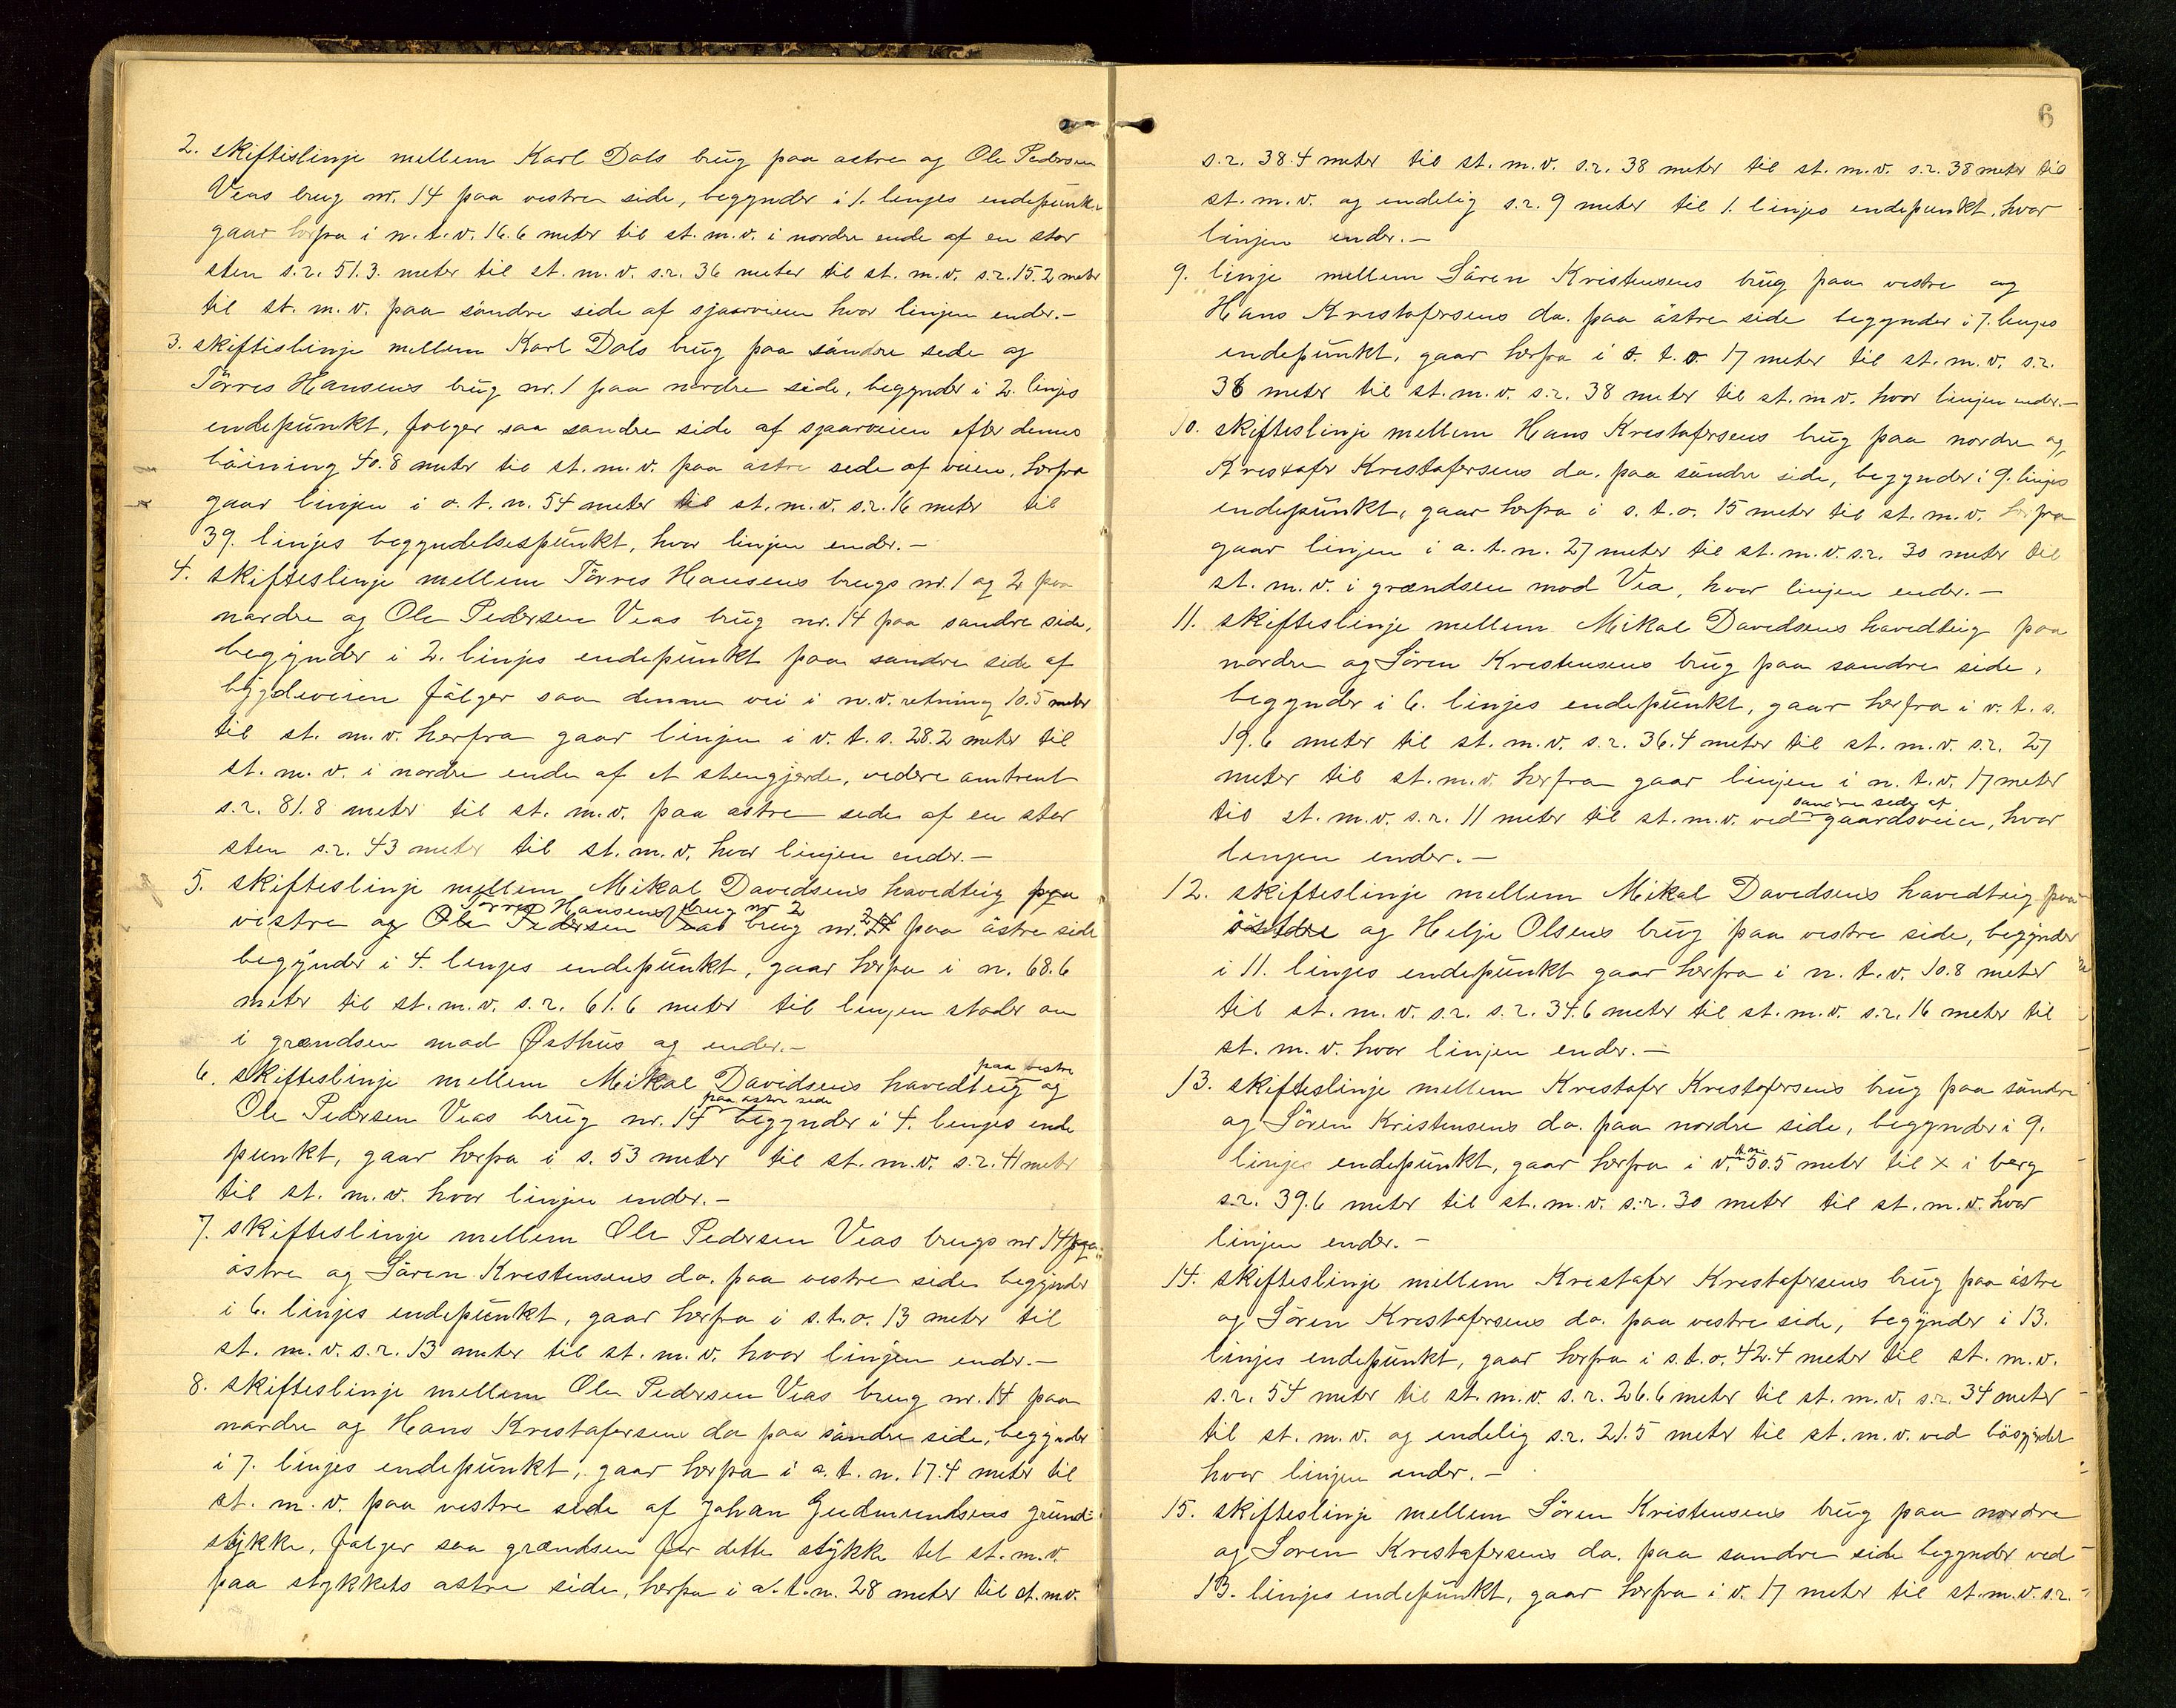 2. skifteslinje mellem Karl Dals brug paa østre og Ole Pedersen
Veas brug nr. 14 paa vestre side, begynder i 1. linjes endepunkt
gaar herfra i n. t. v. 16.6 meter til st. m. v. i nordre ende af en stor
sten s.r. 51.3. meter til st. m. v. s.r. 36 meter til st. m. v. s.r. 15.2 meter
til st. m. v. paa söndre side af sjaaveien hvor linjen ender.-
3. skifteslinje mellem Karl Dals brug paa söndre side og
Törres Hansens brug nr. 1 paa nordre side, begynder i 2. linjes
endepunkt, følger saa søndre side af sjaaveien efter dennes
böining 40.8 meter til st. m. v. paa östre side af veien, herfra
gaar linjen i o. t. n. 54 meter til st. m. v. s.r. 16 meter til
39. linjes begyndelsespunkt, hvor linjen ender.-
4. skifteslinje mellem Törres Hansens brugs nr. 1 og 2 paa
nordre og Ole Pedersen Veas brug nr. 14 paa søndre side,
begynder i 2. linjes endepunkt paa søndre side af
bygdeveien fölger saa denne vei i n.v. retning 10.5 meter
til st. m. v. herfra gaar linjen i v. t. s. 28.2 meter til
st. m. v. i nordre ende af et stengjerde, videre omtrent
s.r. 81.8 meter til st. m. v. paa østre side af en stor
sten s.r. 43 meter til st. m. v. hvor linjen ender.-
5. skifteslinje mellem Mikal Davidsens havedteig paa
Törres Hansens brug nr 2
vestre og Ole Pedersen Veas brug nr. 2 14 paa östre side
begynder i 4. linjes endepunkt, gaar herfra i n. 68.6
meter til st. m. v. s.r. 61.6 meter til linjen støder an
i grændsen mod Østhus og ender.-
paa vestre
6. skifteslinje mellem Mikal Davidsens havedteig og
paa østre side
Ole Pedersen Veas brug nr. 14 begynder i 4. linjes ende
punkt, gaar herfra i s. 53 meter til st. m. v. s.r. 41 meter
til st. m. v. hvor linjen ender.-
7. skifteslinje mellem Ole Pedersen Veas brugs nr 14 paa
östre og Sören Kristensens do. paa vestre side begynder
i 6. linjes endepunkt, gaar herfra i s. t. o. 13 meter til
st. m. v. s.r. 13 meter til st. m. v. hvor linjen ender.-
8. skifteslinje mellem Ole Pedersen Veas brug nr. 14 paa
nordre og Hans Kristofersens do paa söndre side, begynder
i 7. linjes endepunkt, gaar herfra i o. t. n. 17.4 meter til
st. m. v. paa vestre side af Johan Gudmundsens grund-
stykke, følger saa grændsen for dette stykke til st. m. v.
paa stykkets østre side, herfra i o. t. n. 28 meter til st. m. v.
6
s.r. 38.4 meter til st. m. v. s.r. 38 meter til st. m. v. s.r. 38 meter til
st. m. v. og endelig s.r. 9 meter til 1. linjes endepunkt, hvor
linjen ender.-
9. linje mellem Sören Kristensens brug paa vestre og
Hans Kristofersens do. paa östre side begynder i 7. linjes
endepunkt, gaar herfra i s. t. o. 17 meter til st. m. v. s.r.
36 meter til st. m. v. s.r. 38 meter til st. m. v. hvor linjen ender.-
10. skifteslinje mellem Hans Kristofersens brug paa nordre og
Kristofer Kristofersens do. paa söndre side, begynder i 9. linjes
endepunkt, gaar herfra i s. t. o. 15 meter til st. m. v. herfra
gaar linjen i o. t. n. 27 meter til st. m. v. s.r. 30 meter til
st. m. v. i grændsen mod Vea, hvor linjen ender.-
11. skifteslinje mellem Mikal Davidsens havedteig paa
nordre og Sören Kristensens brug paa søndre side,
begynder i 6. linjes endepunkt, gaar herfra i v. t. s.
19.6 meter til st. m. v. s.r. 36.4 meter til st. m. v. s.r. 27
meter til st. m. v. herfra gaar linjen i n. t. v. 17 meter
søndre side af
til st. m. v. s.r. 11 meter til st. m. v. ved gaardsveien, hvor
linjen ender.-
12. skifteslinje mellem Mikal Davidsens havedteig paa
östre og Helje Olsens brug paa vestre side, begynder
i 11. linjes endepunkt gaar herfra i n. t. v. 10.8 meter
til st. m. v. s.r. s.r. 34.6 meter til st. m. v. s.r. 16 meter til
st. m. v. hvor linjen ender.-
13. skifteslinje mellem Kristofer Kristofersens brug paa söndre
og Sören Kristensens do. paa nordre side, begynder i 9.
linjes endepunkt, gaar herfra i v. t. n. 50.5 meter til x i berg
s.r. 39.6 meter til st. m. v. s.r. 30 meter til st. m. v. hvor
linjen ender.-
14. skifteslinje mellem Kristofer Kristofersens brug paa östre
og Sören Kristofersens do. paa vestre side, begynder i 13.
linjes endepunkt, gaar herfra i s. t. o. 42.4 meter til st. m. v.
s.r. 54 meter til st. m. v. s.r. 26.6 meter til st. m. v. s.r. 34 meter
til st. m. v. og endelig s.r. 21.5 meter til st. m. v. ved bögjerdet
hvor linjen ender.-
15. skifteslinje mellem Sören Kristensens brug paa nordre
og Sören Kristofersens do. paa søndre side begynder ved
13. linjes endepunkt, gaar herfra i v. 17 meter til st. m. v. s.r.